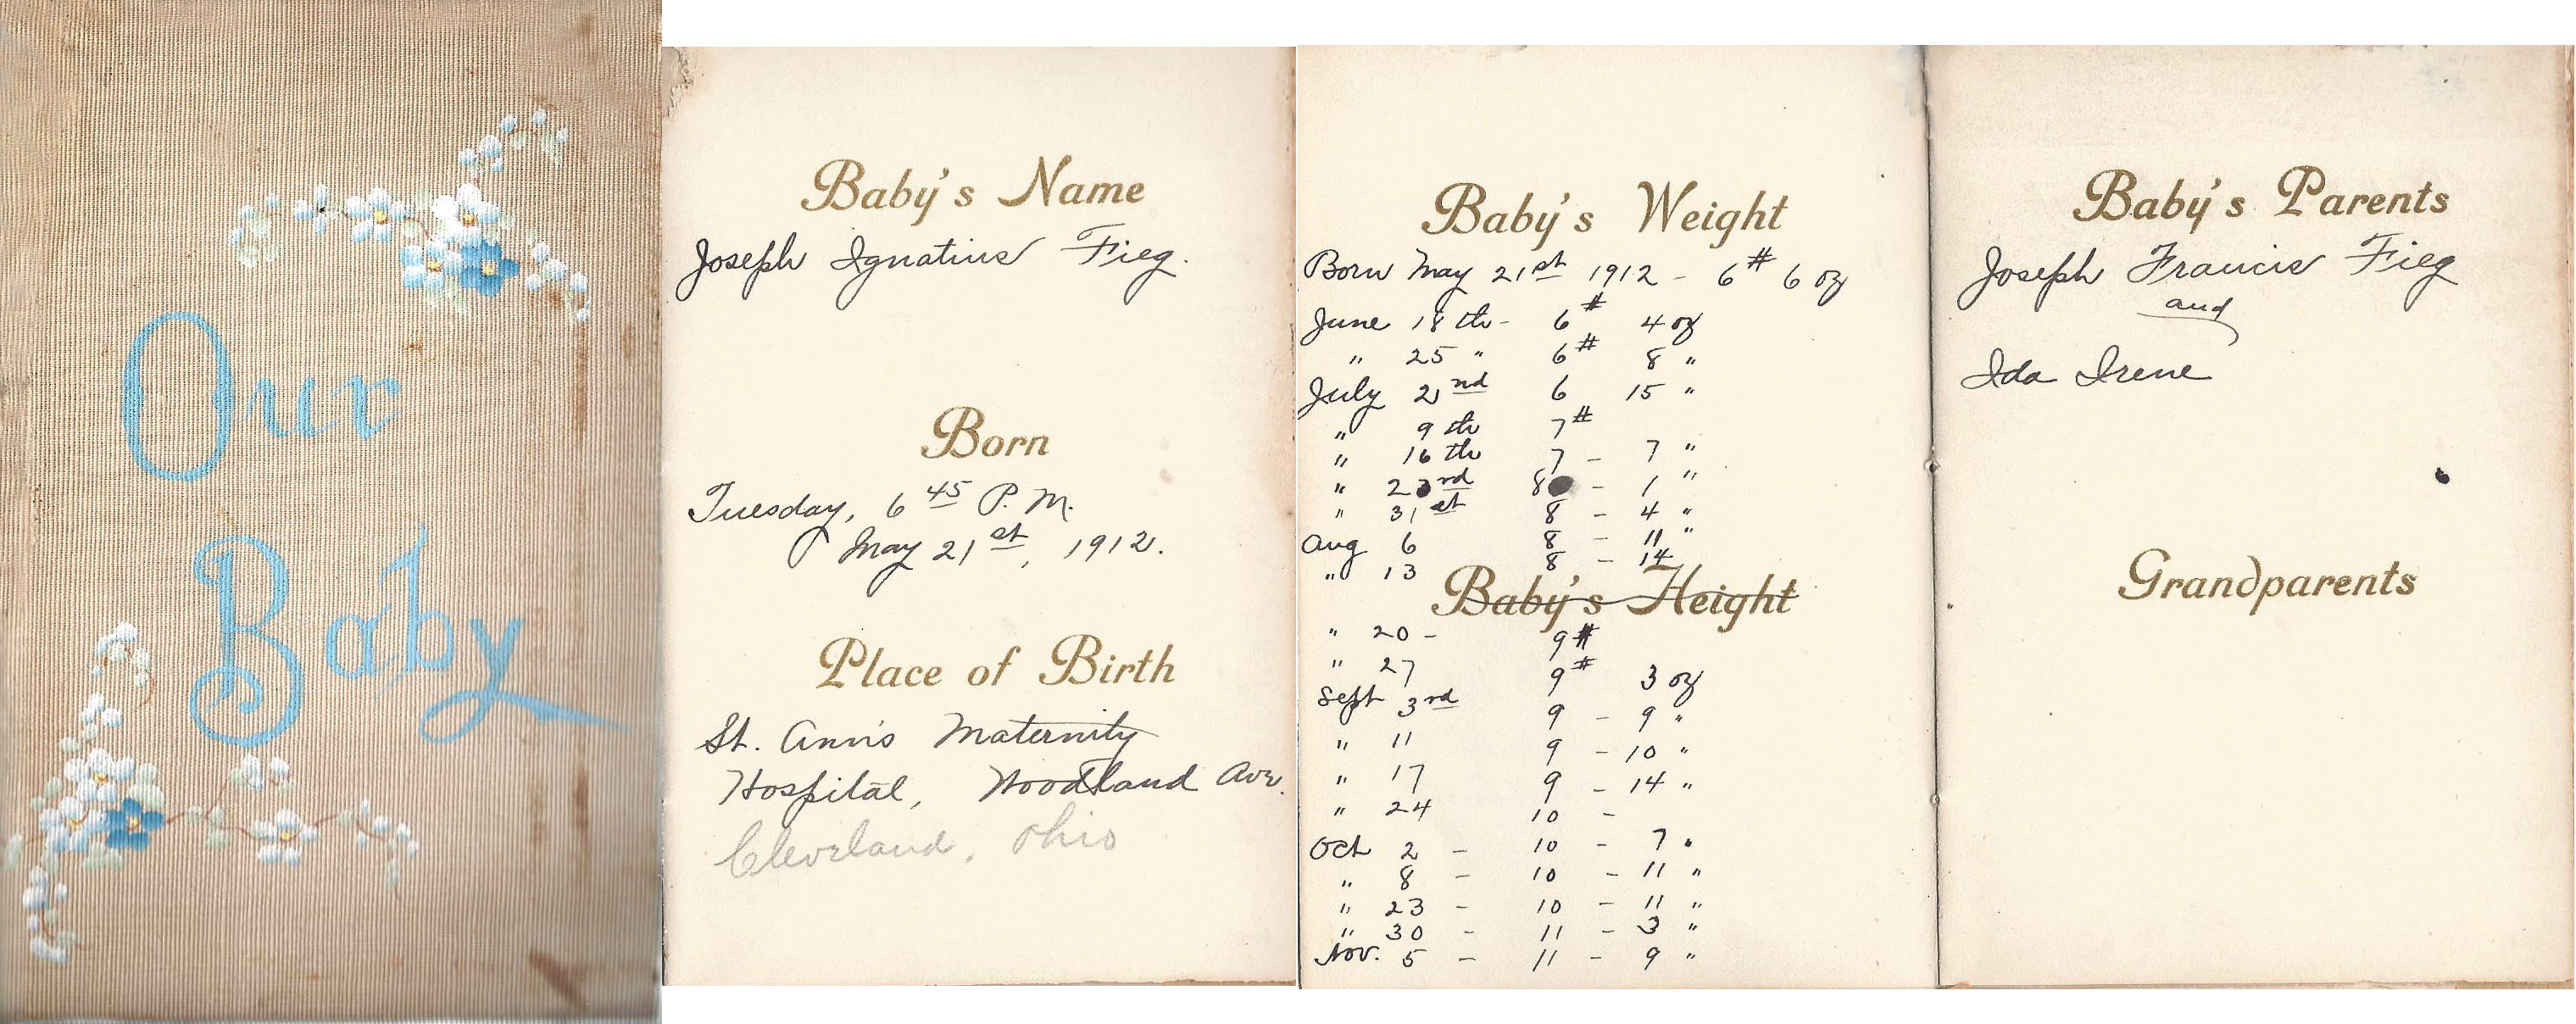 Our
Baby
Baby's Name
Joseph Ignatius Fieg.
Born
Tuesday, 6 45 P.M.
May 21st, 1912.
Place of Birth
St. Ann's Maternity
Hospital, Woodland Ave.
Cleveland, Ohio
Baby's Weight
Born May 21st 1912 - 6# 6 oz
June 18th - 6# 4 oz
" 25 " 6# 8 "
July 2nd 6 15 "
" 9th 7#
" 16th 7 - 7 "
" 23rd 8 - 1 "
" 31st 8 - 4 "
Aug 6 8 - 11 "
" 13 8 - 14
Baby's Height
" 20 - 9#
" 27 9# 3 oz
Sept 3rd 9 - 9 "
" 11 9 - 10 "
" 17 9 - 14 "
" 24 10 -
Oct 2 - 10 - 7 "
" 8 - 10 - 11 "
" 23 - 10 - 11 "
" 30 - 11 - 3 "
Nov. 5 - 11 - 9 "
Baby's Parents
Joseph Francis Fieg
and
Ida Irene
Grandparents